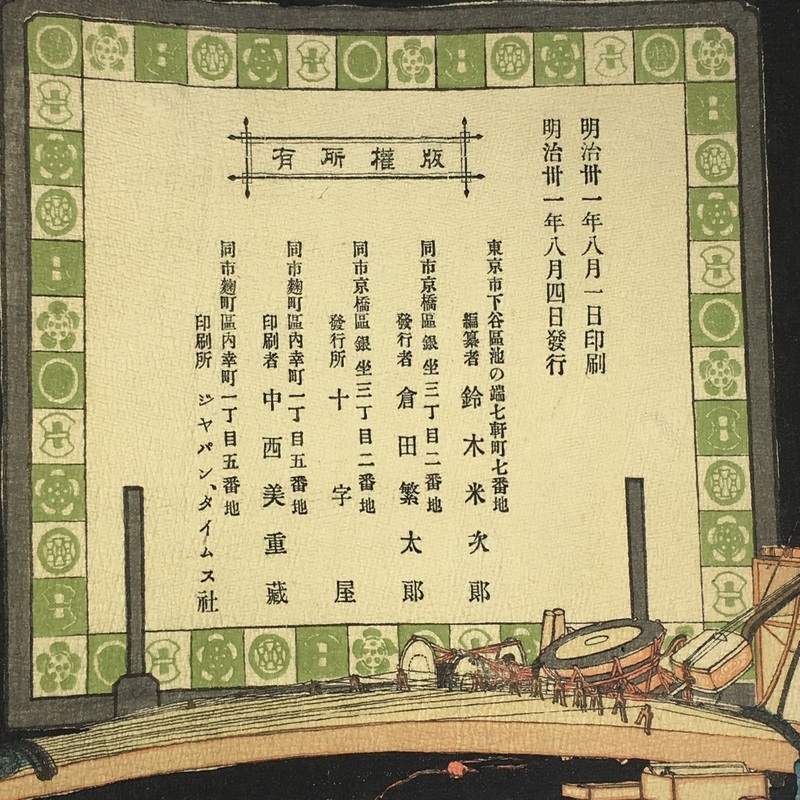 明治卅一年八月一日印刷
明治卅一年八月四日發行
版權所有
東京市下谷區池の端七軒町七番地
編纂者 鈴木米次郎
同市京橋區銀坐三丁目二番地
發行者 倉田繁太郎
同市京橋區銀坐三丁目二番地
發行所 十字屋
同市麴町區內幸町一丁目五番地
印刷者 中西美重藏
同市麴町區內幸町一丁目五番地
印刷所 ジャパン、タイムス社